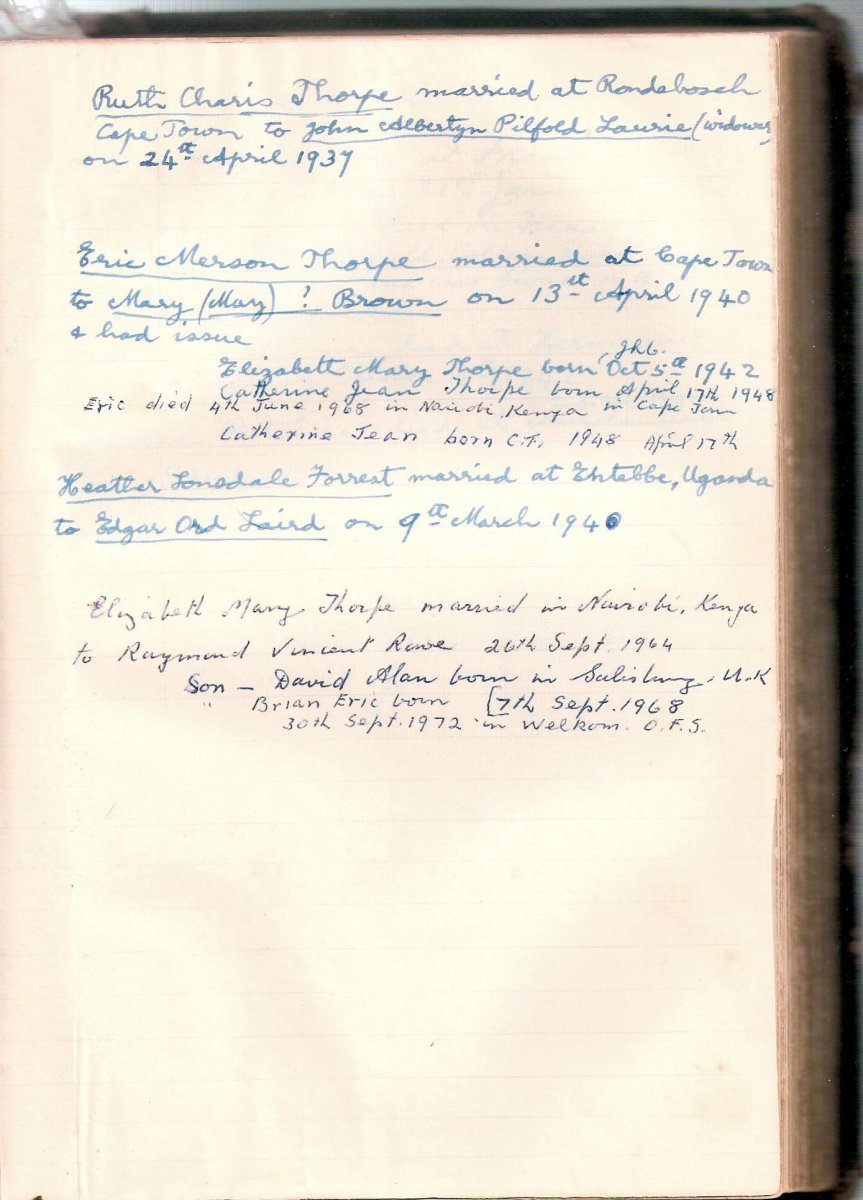 Ruth Charis Thorpe married at Rondebosch
Cape Town to John Albertyn Pilfold Laurie (widower)
on 24th April 1937
Eric Merson Thorpe married at Cape Town
to Mary (Mary) ? Brown on 13st April 1940
& had issue
Elizabeth Mary Thorpe born Oct 5th 1942
Catherine Jean Thorpe born April 17th 1948
Eric died 4th June 1968 in Nairobi, Kenya in Cape Town
Catherine Jean born C.T. 1948 April 17th
Heather Lonsdale Forrest married at Entebbe, Uganda
to Edgar Ord Laird on 9th March 1940
Elizabeth Mary Thorpe married in Nairobi, Kenya
to Raymond Vincent Rowe 26th Sept. 1964
Son – David Alan born in Salisbury. U.K
" Brian Eric born [7th Sept. 1968
30th Sept. 1972 in Welkom. O.F.S.